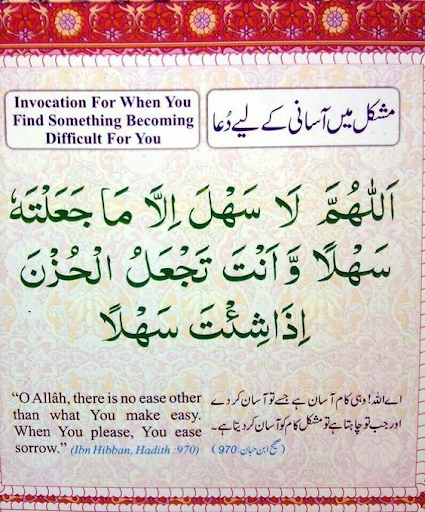 Invocation For When You
Find Something Becoming
Difficult For You
مشکل میں آسانی کے لیے دُعا
اَللّٰهُمَّ لَا سَهْلَ اِلَّا مَا جَعَلْتَهٗ
سَهْلًا وَّاَنْتَ تَجْعَلُ الْحُزْنَ
اِذَا شِئْتَ سَهْلًا
"O Allâh, there is no ease other
than what You make easy.
When You please, You ease
sorrow." (Ibn Hibban, Hadith :970)
اے اللہ! وہی کام آسان ہے جسے تو آسان کر دے
اور جب تو چاہتا ہے تو مشکل کام کو آسان کر دیتا ہے۔
(صحیح ابن حبان: 970)